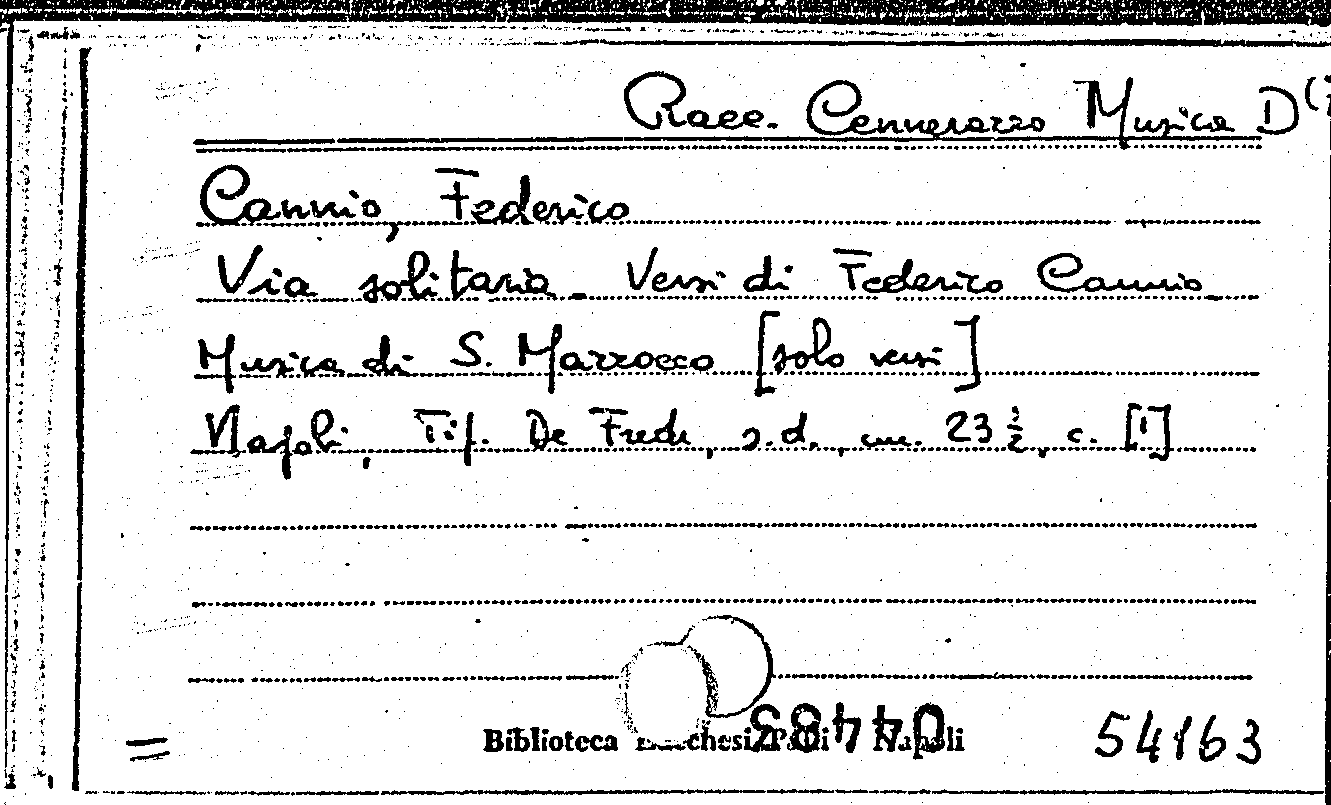 Racc. Cennerazzo Musica D
Cannio, Federico
Via solitaria_ Versi di Federico Cannio
Musica di S. Mazzocco [solo versi]
Napoli, Tip. De Frede, s.d., cm. 23 ½, c. [1]
Biblioteca Lucchesi Palli Napoli
04483
54163